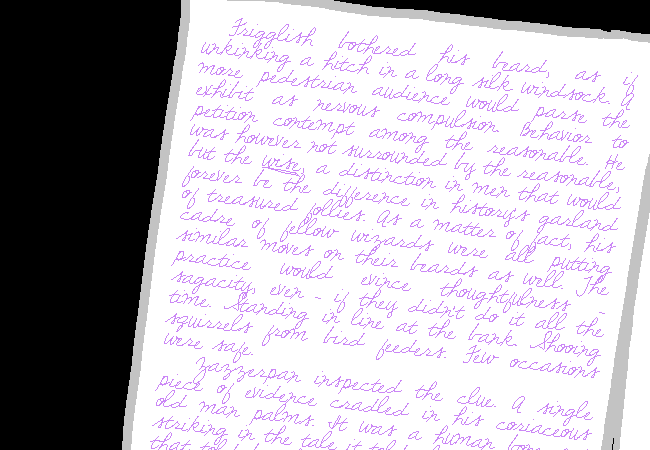 Frigglish bothered his beard, as if
unkinking a hitch in a long silk windsock. A
more pedestrian audience would parse the
exhibit as nervous compulsion. Behavior to
petition contempt among the reasonable. He
was however not surrounded by the reasonable,
but the wise, a distinction in men that would
forever be the difference in history's garland
of treasured follies. As a matter of fact, his
cadre of fellow wizards were all putting
similar moves on their beards as well. The
practice would evince thoughtfulness –
sagacity, even – if they didn't do it all the
time. Standing in line at the bank. Shooing
squirrels from bird feeders. Few occasions
were safe.
Zazzerpan inspected the clue. A single
piece of evidence cradled in his coriaceous
old man palms. It was a human bone
striking in the tale it
that